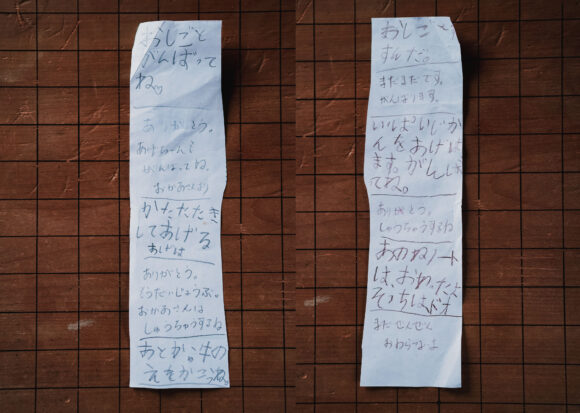 おしごと
がんばって
ね♡
ありがとう。
あげちゃんも
がんばってね。
おかあさんより
かたたたき
してあげる
あげは
ありがとう。
もうだいじょうぶ。
おかあさんは
しゅっちょうするね
あとが、牛の
えをかこうね。
おしごとう
すんだ。
まだまだです。
がんばります。
いいか
んをあげ
ます。がんば
てね。
ありがとう。
しゅっちょうするね
あかねノート
は、おわったよ
そっちは、ドオ
まだ ぜんぜん
おわらないよ